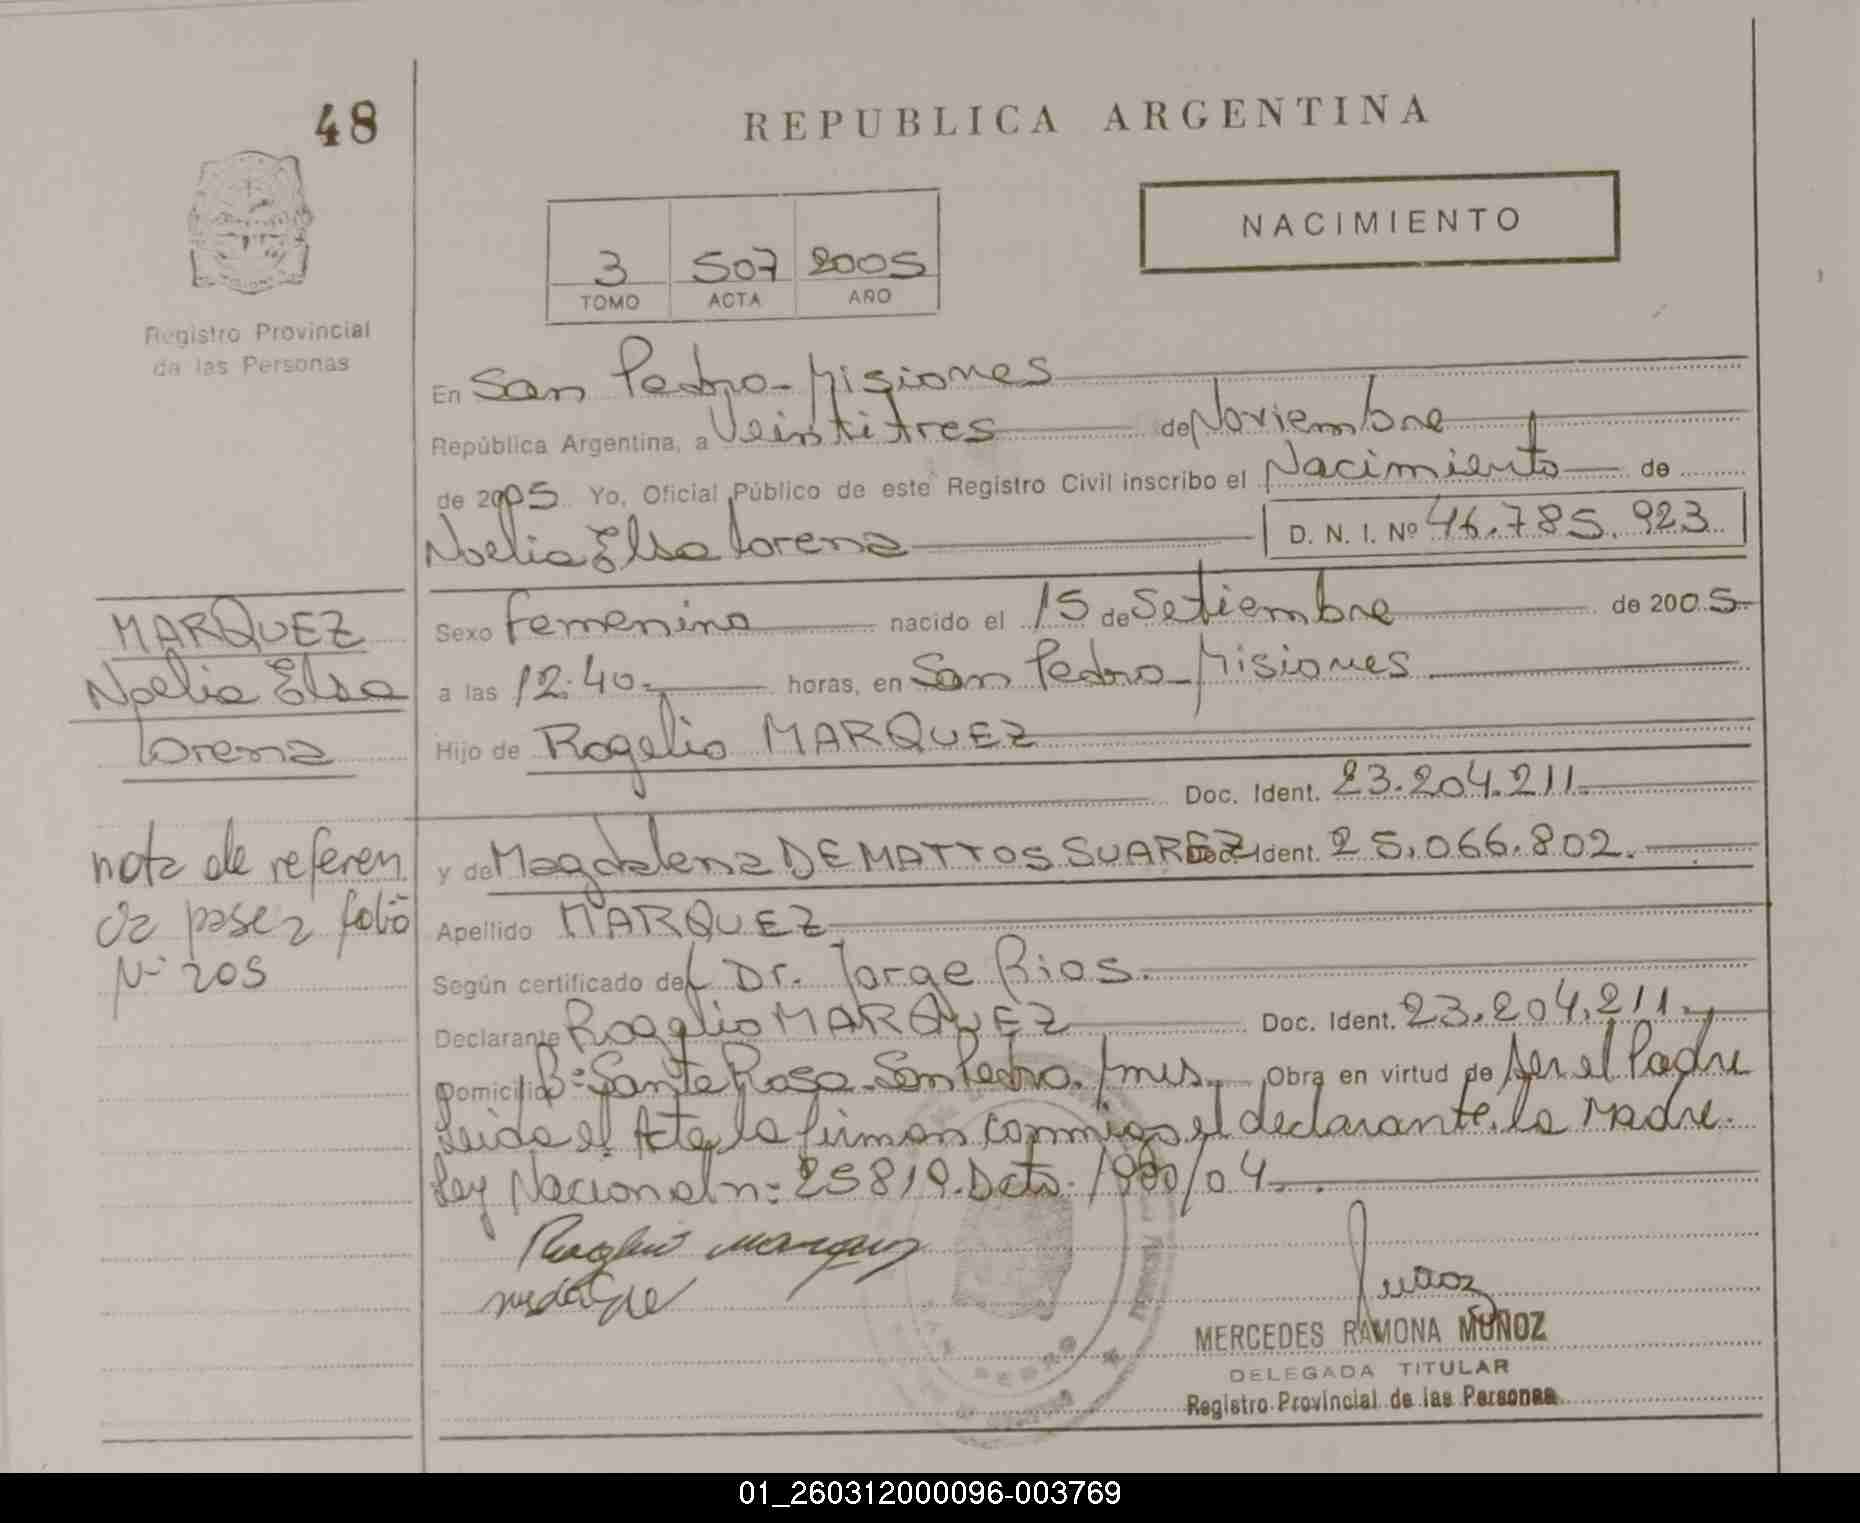 48
REPUBLICA ARGENTINA
NACIMIENTO
3 507 2005
TOMO ACTA AÑO
Registro Provincial
de las Personas
En San Pedro - Misiones
República Argentina, a Veintitres de Noviembre
de 2005 Yo, Oficial Público de este Registro Civil inscribo el Nacimiento de
Noelia Elsa Lorena D. N. I. Nº 46.785.923
MARQUEZ
Noelia Elsa
Lorena
Sexo Femenino nacido el 15 de Setiembre de 2005
a las 12.40 horas, en San Pedro - Misiones
Hijo de Rogelio MARQUEZ
Doc. Ident. 23.204.211.
y de Magdalena DE MATTOS SUAREZ Doc. Ident. 25.066.802.
Apellido MARQUEZ
Según certificado del Dr. Jorge Rios.
Declarante Rogelio MARQUEZ Doc. Ident. 23.204.211.
Domicilio Bº Santa Rosa - San Pedro. Mnes. Obra en virtud de Ser el Padre
Leida el Acta la firman conmigo el declarante. la Madre.
Ley Nacional nº 25819. Dcto. /04.
nota de referen
cia pase a folio
Nº 205
Rogelio Marquez
Muñoz
MERCEDES RAMONA MUÑOZ
DELEGADA TITULAR
Registro Provincial de las Personas
01_260312000096-003769